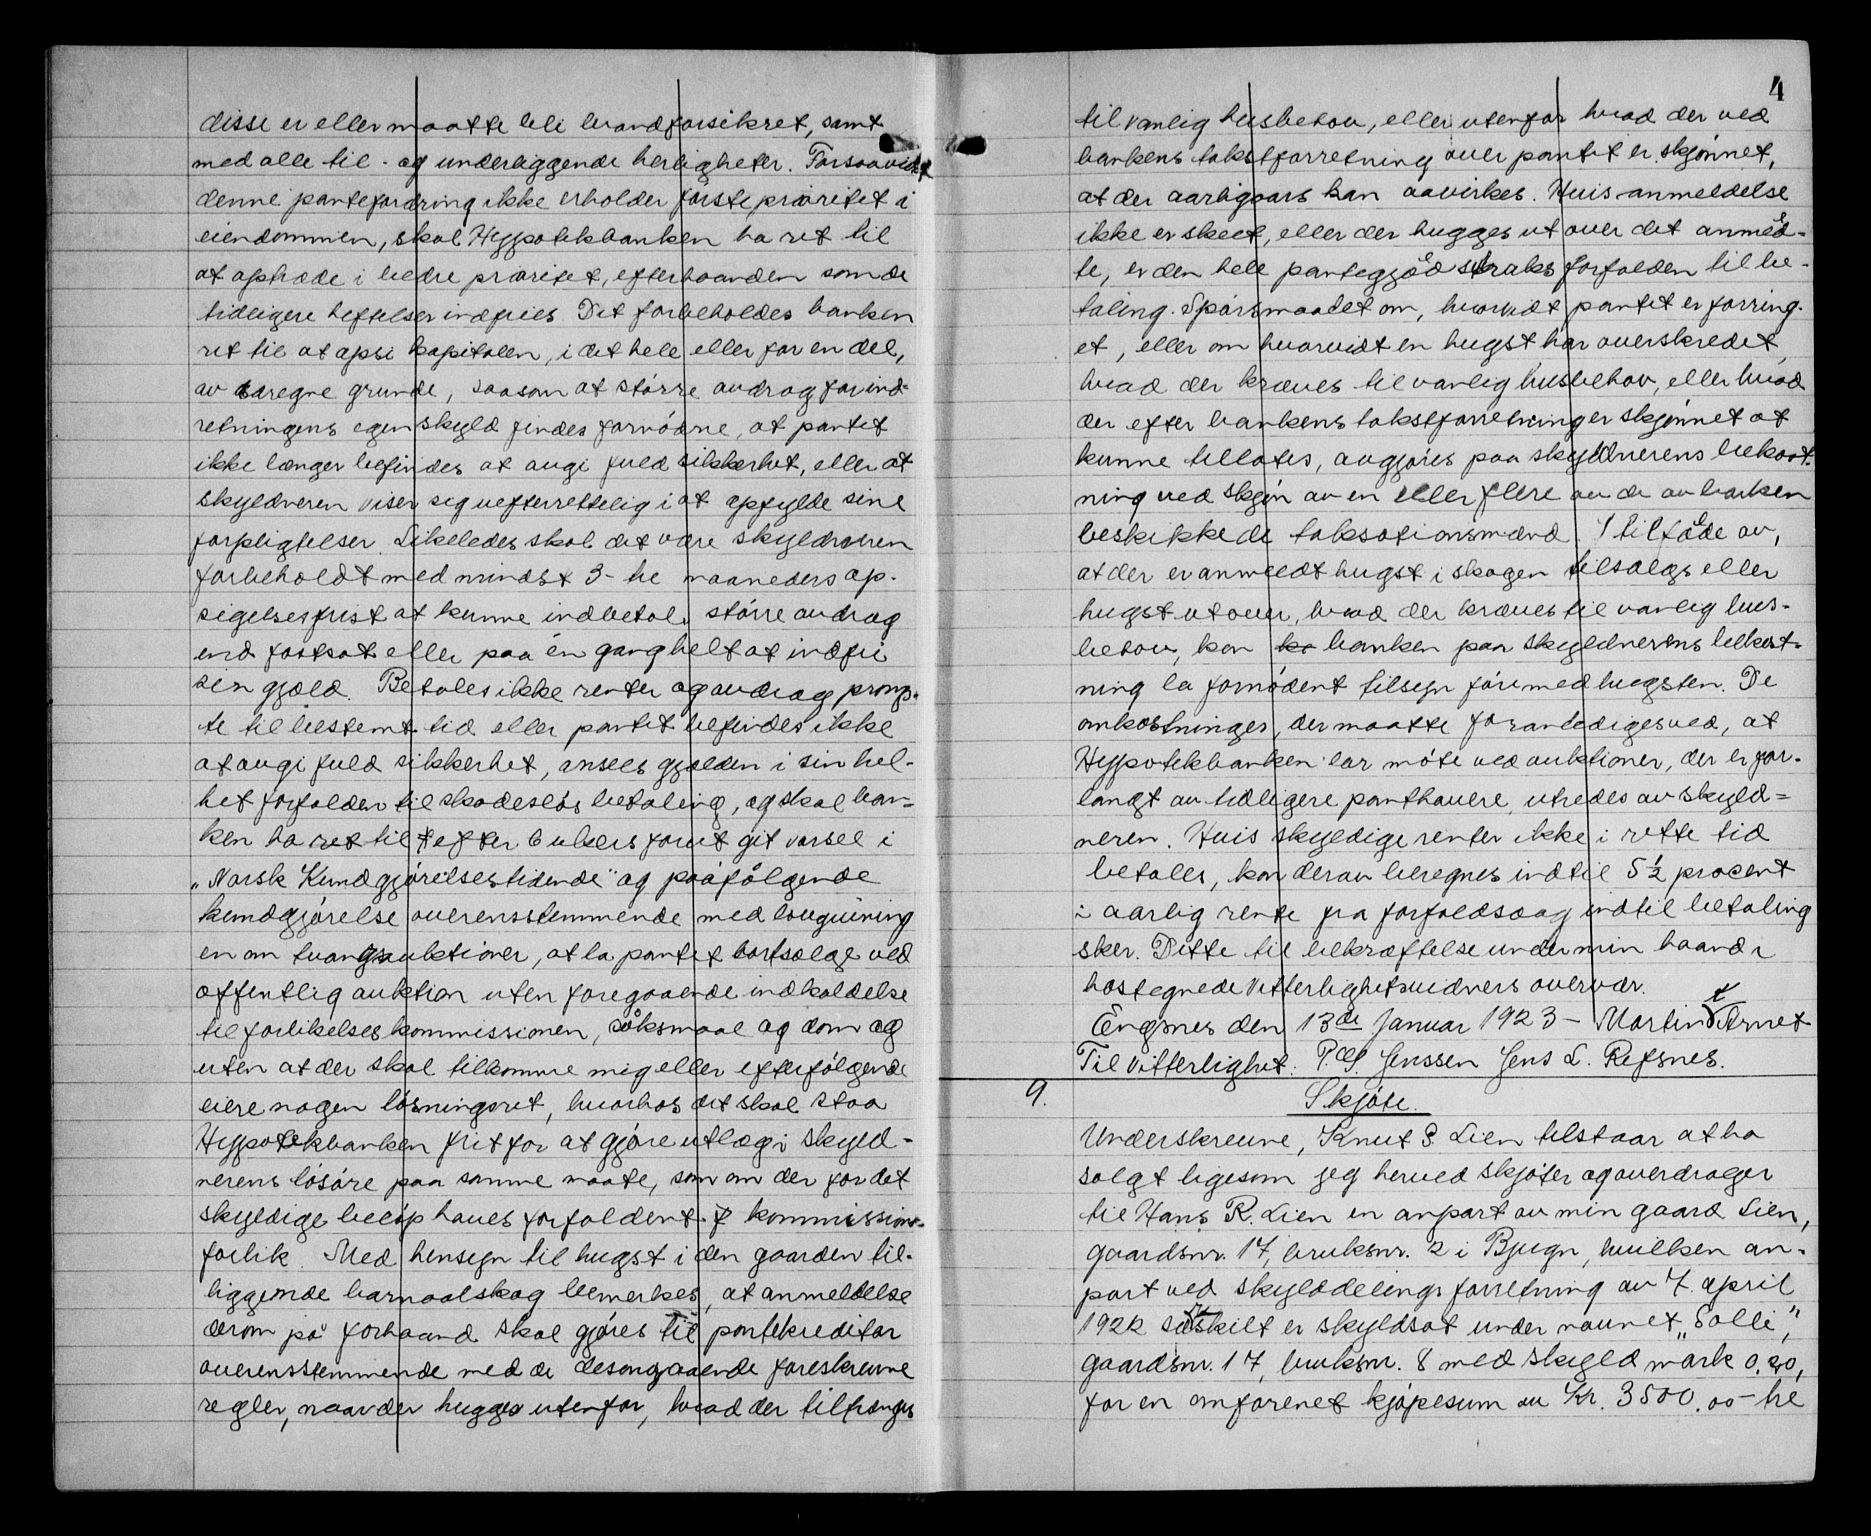 disse er eller maatte bli brandforsikret, samt
med alle til- og underliggende herligheter. Forsaavidt
denne pantefordring ikke erholder første prioritet i
eiendommen, skal Hypotekbanken ha ret til
at optræde i bedre prioritet, efterhaanden som de
tidligere heftelser indfries. Det forbeholdes banken
ret til at opsi kapitalen, i det hele eller for en del,
av aaregne grunde, saasom at større avdrag for ind-
retningens egen skyld findes fornødne, at pantet
ikke længer befindes at avgi fuld sikkerhet, eller at
skyldneren viser sig uefterrettelig i at opfylde sine
forpligtelser. Likeledes skal det være skyldneren
forbeholdt med mindst 3- tre maaneders op-
sigelsesfrist at kunne indbetale større avdrag
end fastsat eller paa én gang helt at indfri
sin gjæld. Betales ikke renter og avdrag promp-
te til bestemt tid eller pantet befindes ikke
at avgi fuld sikkerhet, ansees gjælden i sin hel-
het forfalden til skadesløs betaling, og skal ban-
ken ha ret til efter 6 ukers forut git varsel i
"Norsk Kundgjørelsestidende" og paafølgende
kundgjørelse overensstemmende med lovgivning
en om tvangsauktioner, at la pantet bortsælge ved
offentlig auktion uten foregaaende indkaldelse
til forlikelseskommissionen, søksmaal og dom og
uten at der skal tilkomme mig eller efterfølgende
eiere nogen løsningsret, hvorhos det skal staa
Hypotekbanken frit for at gjøre utlæg i skyld-
nerens løsøre paa samme maate, som om der for det
skyldige beløp haves forfaldent f kommissions-
forlik. Med hensyn til hugst i den gaarden til-
liggende barnaalskog bemerkes, at anmeldelse
derom på forhaand skal gjøres til pantekreditor
overensstemmende med de desangaaende foreskrevne
regler, naar der hugges utenfor, hvad der tiltrænges
4
til vanlig husbehov, eller utenfor hvad der ved
bankens takstforretning over pantet er skjønnet,
at der aarligaars kan avvirkes. Hvis anmeldelse
ikke er skeet, eller der hugges ut over det anmeld-
te, er den hele pantegjæld straks forfalden til be-
taling. Spørsmaalet om, hvorvidt pantet er forring-
et, eller om hvorvidt en hugst har overskredet,
hvad der kræves til vanlig husbehov, eller hvad
der efter bankens takstforretning er skjønnet at
kunne tillates, avgjøres paa skyldnerens bekost-
ning ved skjøn av en eller flere av de av banken
beskikkede taksationsmænd. I tilfælde av,
at der er anmeldt hugst i skogen til salgs eller
hugst utover, hvad der kræves til vanlig hus-
behov, kan ka banken paa skyldnerens bekost-
ning la fornødent tilsyn føre med hugsten. De
omkostninger, der maatte foranlediges ved, at
Hypotekbanken lar møte ved auktioner, der er for-
langt av tidligere panthavere, utredes av skyld-
neren. Hvis skyldige renter ikke i rette tid
betales, kan derav beregnes indtil 5½ procent
i aarlig rente fra forfaldsdag indtil betaling
sker. Dette til bekræftelse under min haand i
hostegnede vitterlighetsvidners overvær.
Engsnes den 13de Januar 1923 - Martin t Arnet
Til Vitterlighet: P. Jenssen Jens L. Refsnes.
9. Skjøte.
Underskrevne, Knut S. Lien tilstaar at ha
solgt likesom jeg herved skjøter og overdrager
til Hans R. Lien en anpart av min gaard Lien,
gaardsnr. 17, bruksnr. 2 i Bjugn, hvilken an-
part ved skylddelingsforretning av 7. april
1922 særskilt er skyldsat under navnet "Solli",
gaardsnr. 17, bruksnr. 8 med skyld mark 0,20,
for en omforenet kjøpesum av Kr. 3500.00 - tre